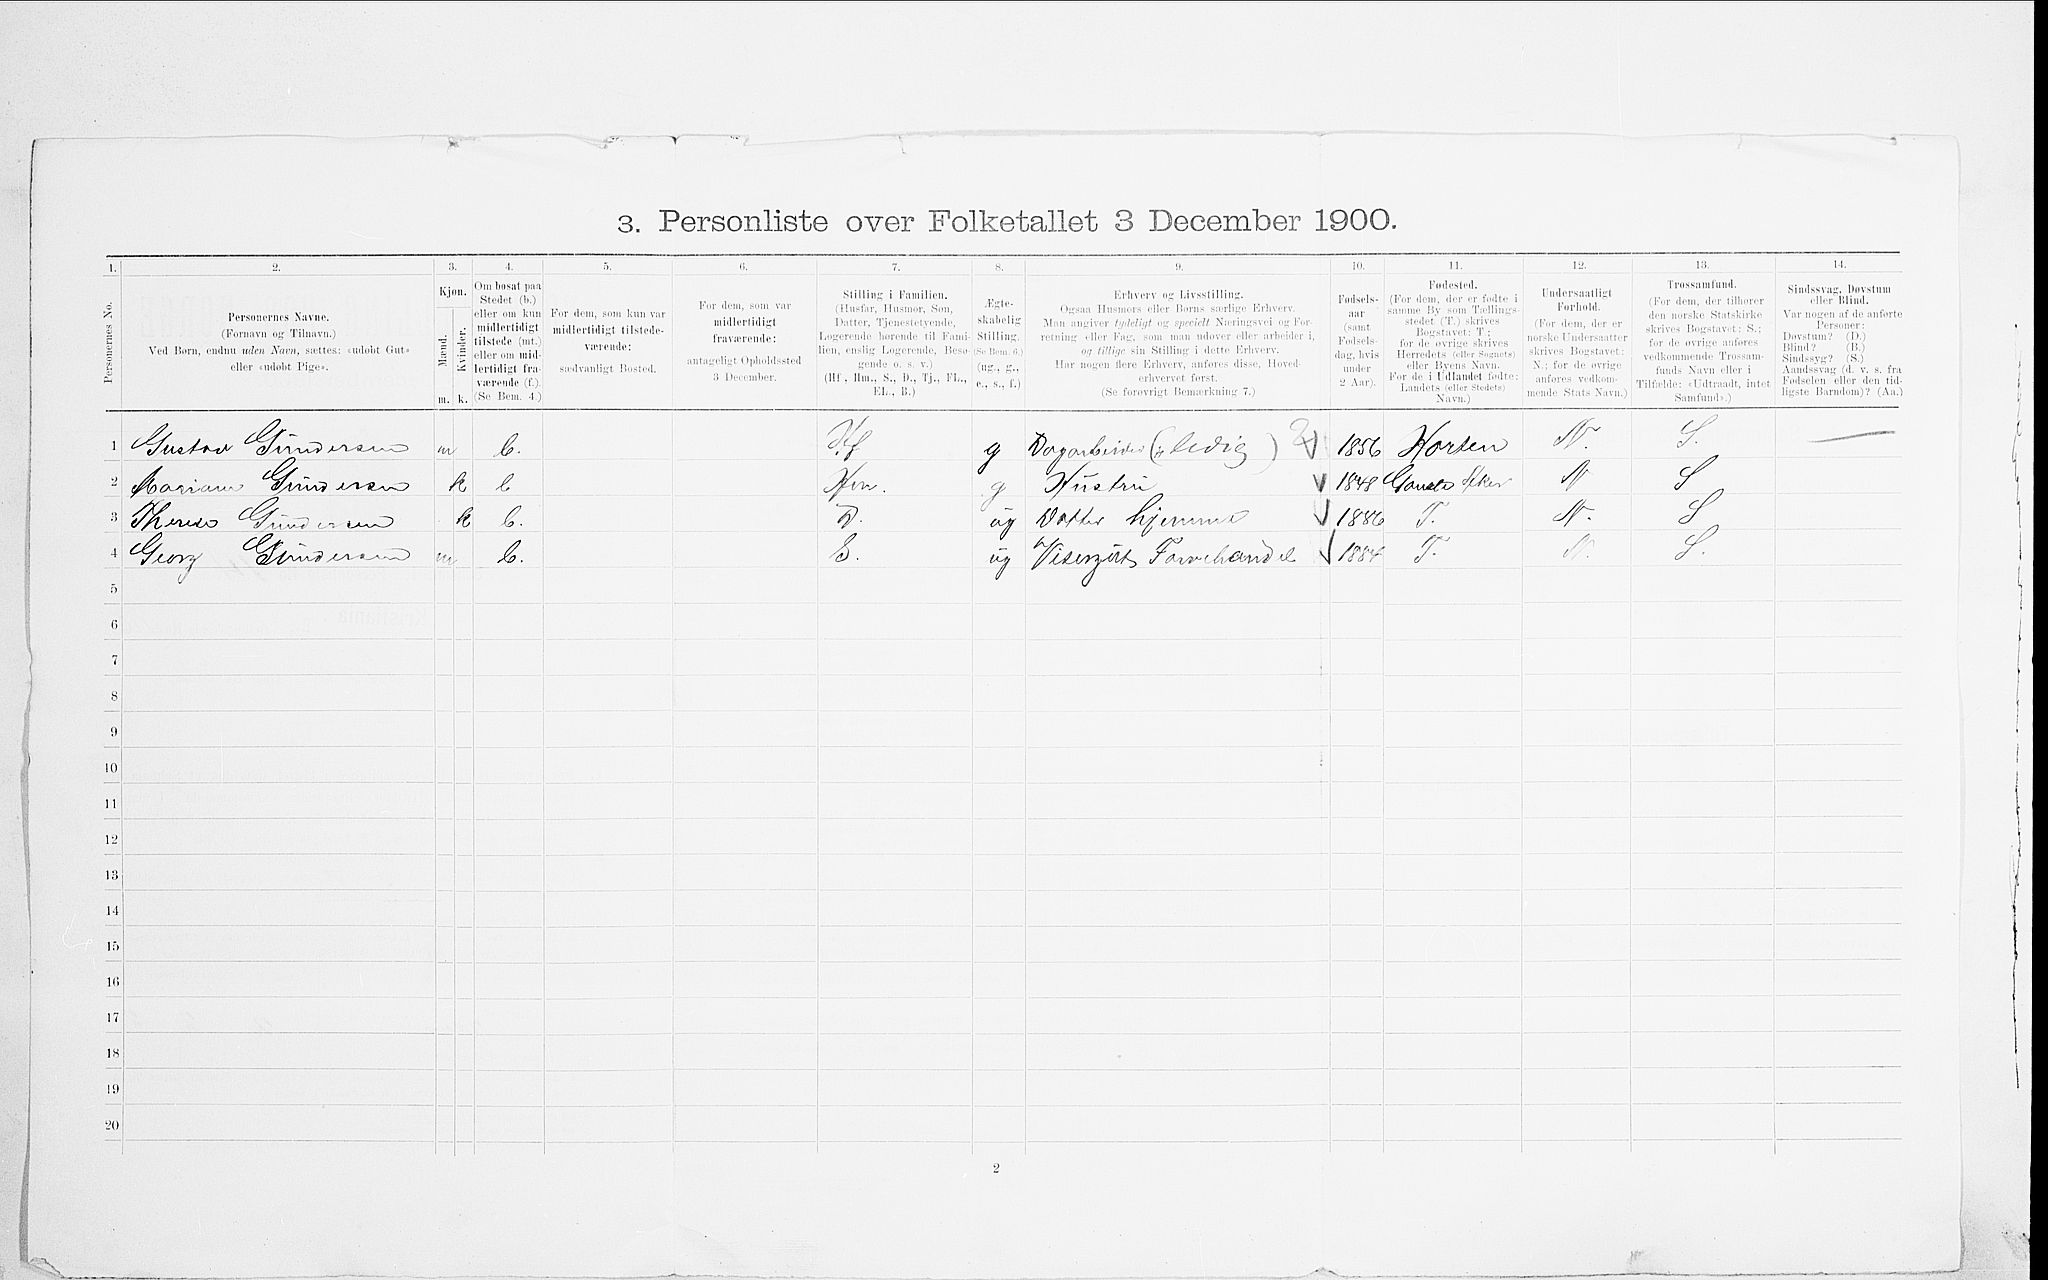 3. Personliste over Folketallet 3 December 1900.
1. 2. 3. 4. 5. 6. 7. 8. 9. 10. 11. 12. 13. 14.
Personernes No.
Personernes Navne.
(Fornavn og Tilnavn.)
Ved Børn, endnu uden Navn, sættes: «udøbt Gut»
eller «udøbt Pige».
Kjøn.
Mænd.
Kvinder.
m. k.
Om bosat paa
Stedet (b.)
eller om kun
midlertidigt
tilstede (mt.)
eller om mid-
lertidigt fra-
værende (f.).
(Se Bem. 4.)
For dem, som kun var
midlertidigt tilstede-
værende:
sædvanligt Bosted.
For dem, som var
midlertidigt
fraværende:
antageligt Opholdssted
3 December.
Stilling i Familien.
(Husfar, Husmor, Søn,
Datter, Tjenestetyende,
Logerende hørende til Fami-
lien, enslig Logerende, Besø-
gende o. s. v.)
(Hf., Hm., S., D., Tj., FL.,
EL., B.)
Ægte-
skabelig
Stilling.
(Se Bem. 6.)
(ug., g.,
e., s., f.)
Erhverv og Livsstilling.
Ogsaa Husmors eller Børns særlige Erhverv.
Man angiver tydeligt og specielt Næringsvei og For-
retning eller Fag, som man udøver eller arbeider i,
og tillige sin Stilling i dette Erhverv.
Har nogen flere Erhverv, anføres disse, Hoved-
erhvervet først.
(Se forøvrigt Bemærkning 7.)
Fødsels-
aar
(samt
Fødsels-
dag, hvis
under
2 Aar).
Fødested.
(For dem, der er fødte i
samme By som Tællings-
stedet (T.) skrives
Bogstavet: T.;
for de øvrige skrives
Herredets (eller Sognets)
eller Byens Navn.
For de i Udlandet fødte:
Landets (eller Stedets)
Navn.)
Undersaatligt
Forhold.
(For dem, der er
norske Undersaatter
skrives Bogstavet:
N.; for de øvrige
anføres vedkom-
mende Stats Navn.)
Trossamfund.
(For dem, der tilhører
den norske Statskirke
skrives Bogstavet: S.;
for de øvrige anføres
vedkommende Trossam-
funds Navn eller i
Tilfælde: «Udtraadt, intet
Samfund».)
Sindssvag, Døvstum
eller Blind.
Var nogen af de anførte
Personer:
Døvstum? (D.)
Blind? (B.)
Sindssyg? (S.)
Aandssvag (d. v. s. fra
Fødselen eller den tid-
ligste Barndom)? (Aa.)
1 Gustav Gundersen m b. Hf g Dagarbeider (ledig) 1856 Horten N. S.
2 Mariane Gundersen k b Hm. g Hustru 1848 Gamle Aker N S
3 Therese Gundersen k b. D. ug Datter hjemme 1886 T. N. S
4 Georg Gundersen m b. S. ug Visergut Farvehandel 1884 T. N. S.
5
6
7
8
9
10
11
12
13
14
15
16
17
18
19
20
2